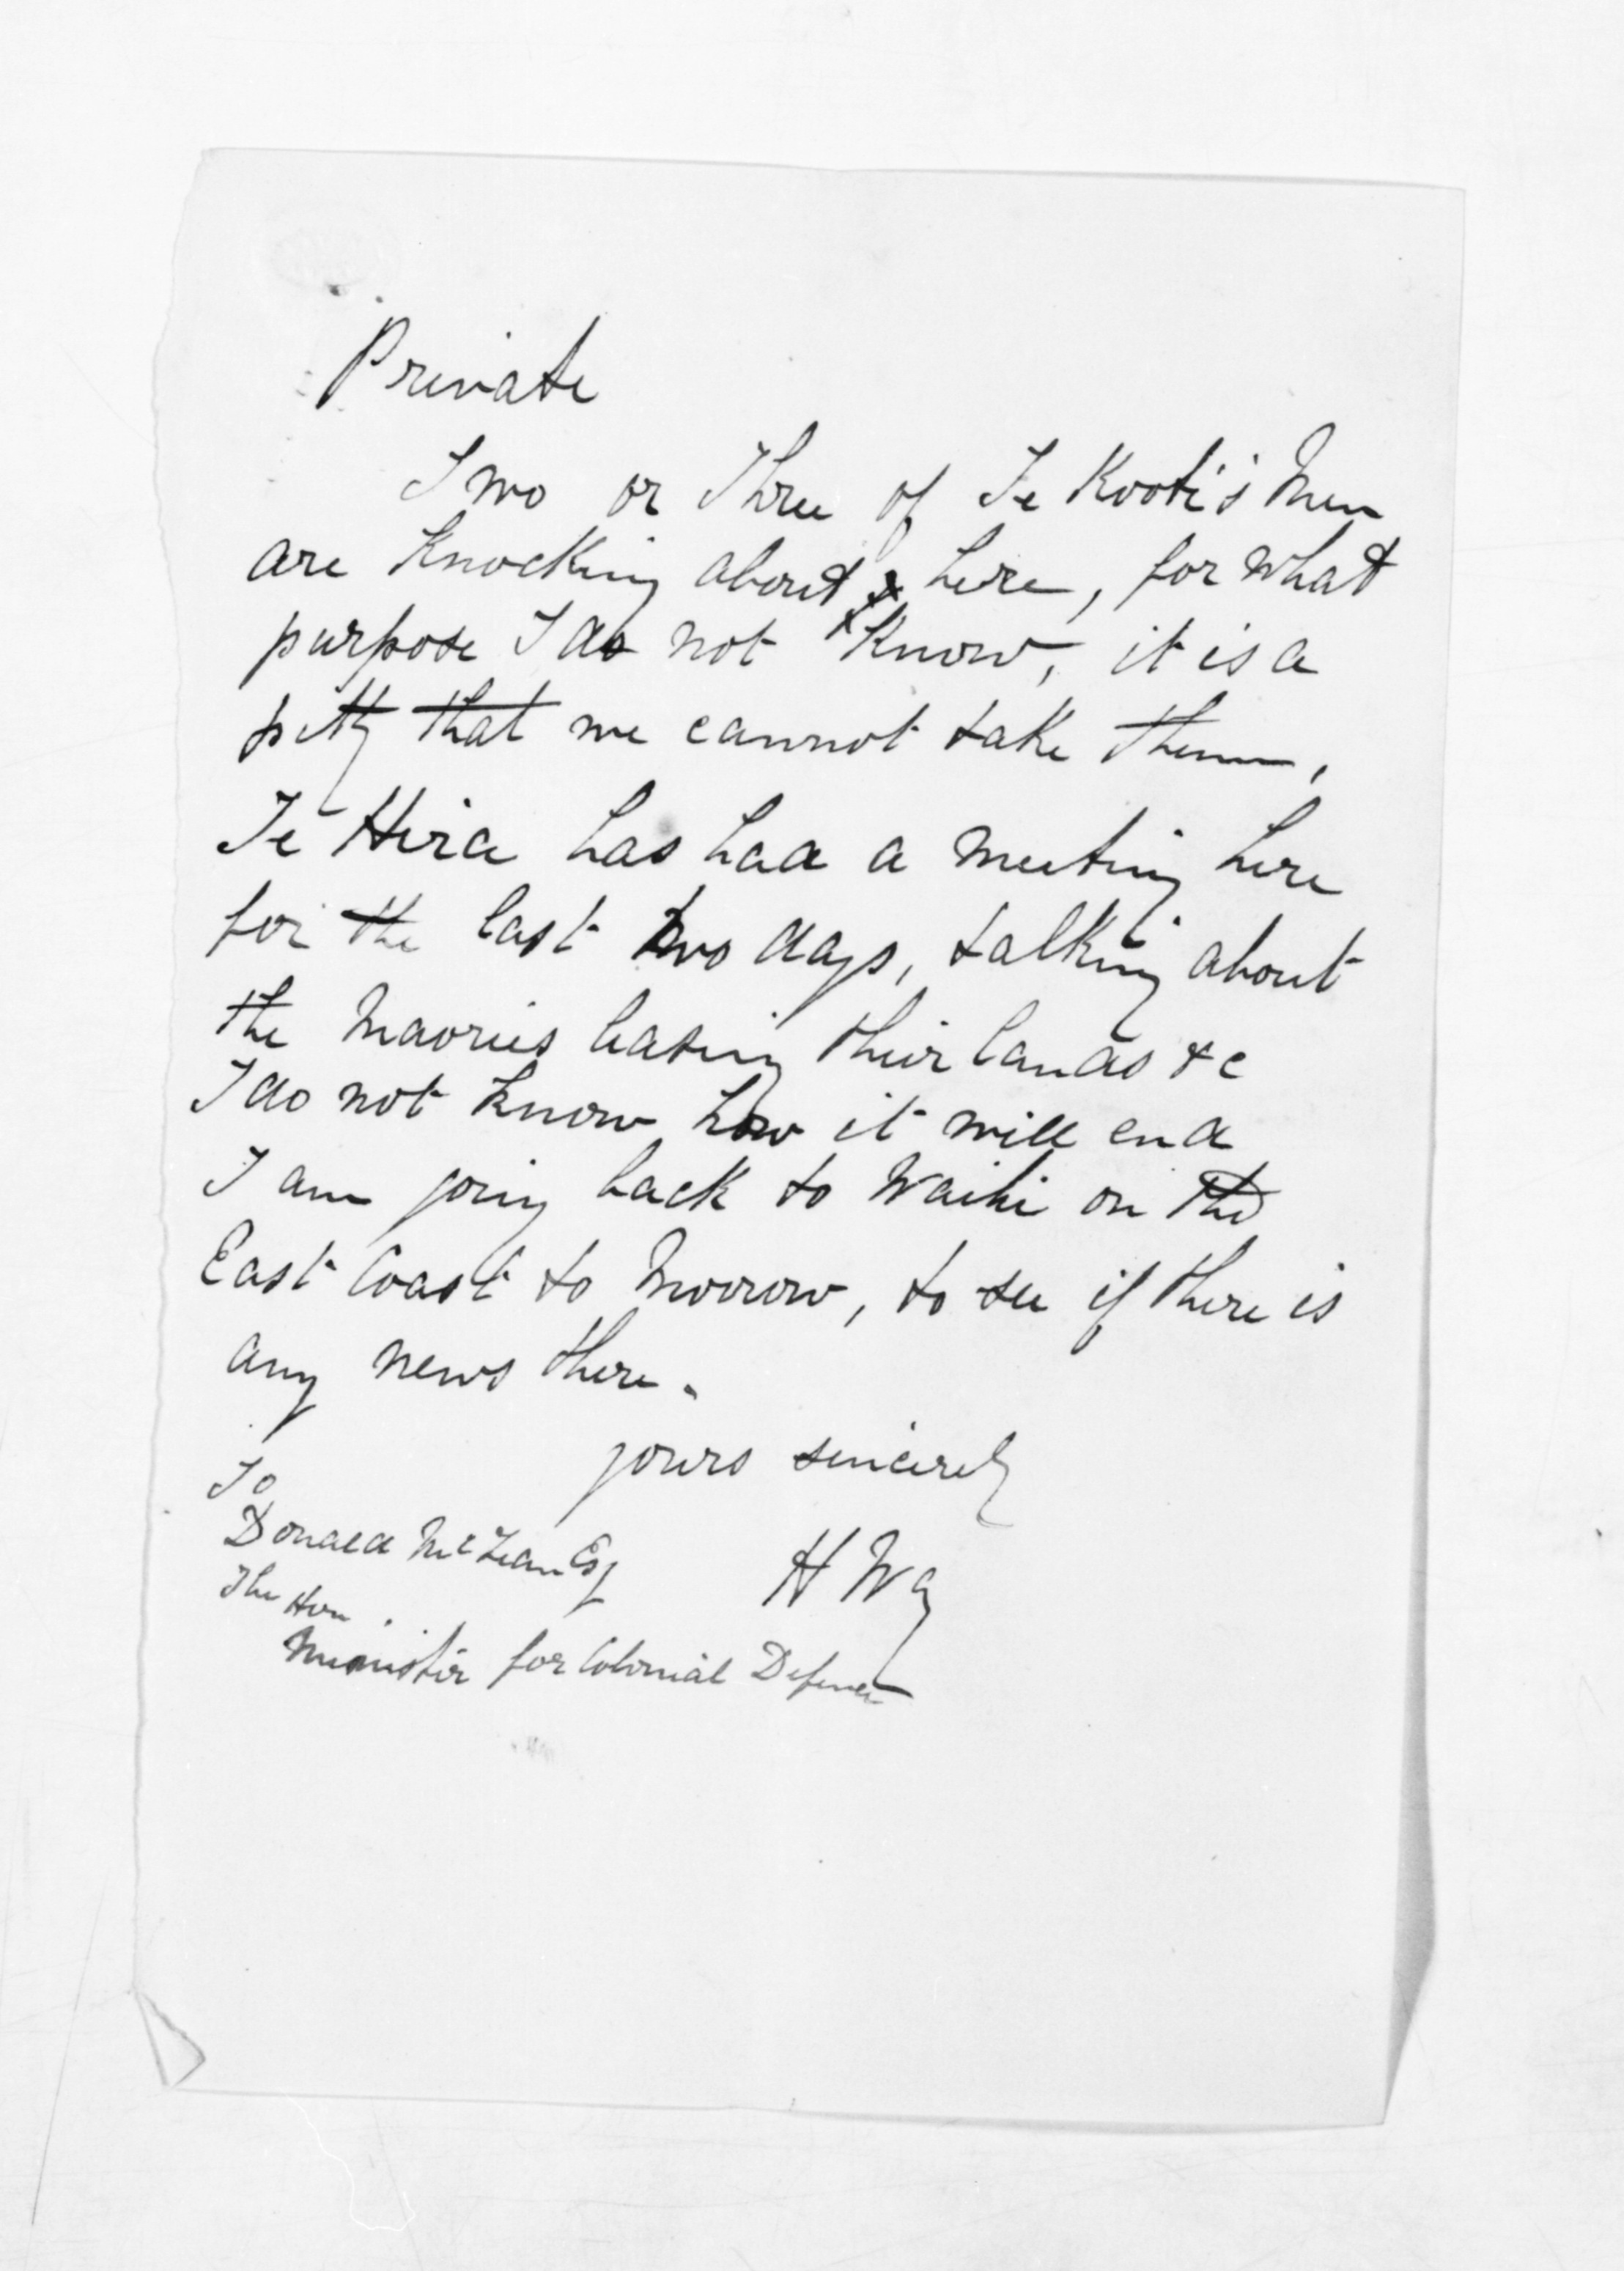 Private
Two or Three of Te Kooti's Men
are Knocking about here, for what
purpose I do not Know, it is a
pitty that we cannot take them,
Te Hira has had a Meeting here
for the last two days, talking about
the Maories leasing their lands &c
I do not know how it will end
I am going back to Waihi on the
East Coast to Morrow, to see if there is
any news there.
yours sincerely
To
Donald McLean Esq
H Way
The Hon
Minister for Colonial Defence